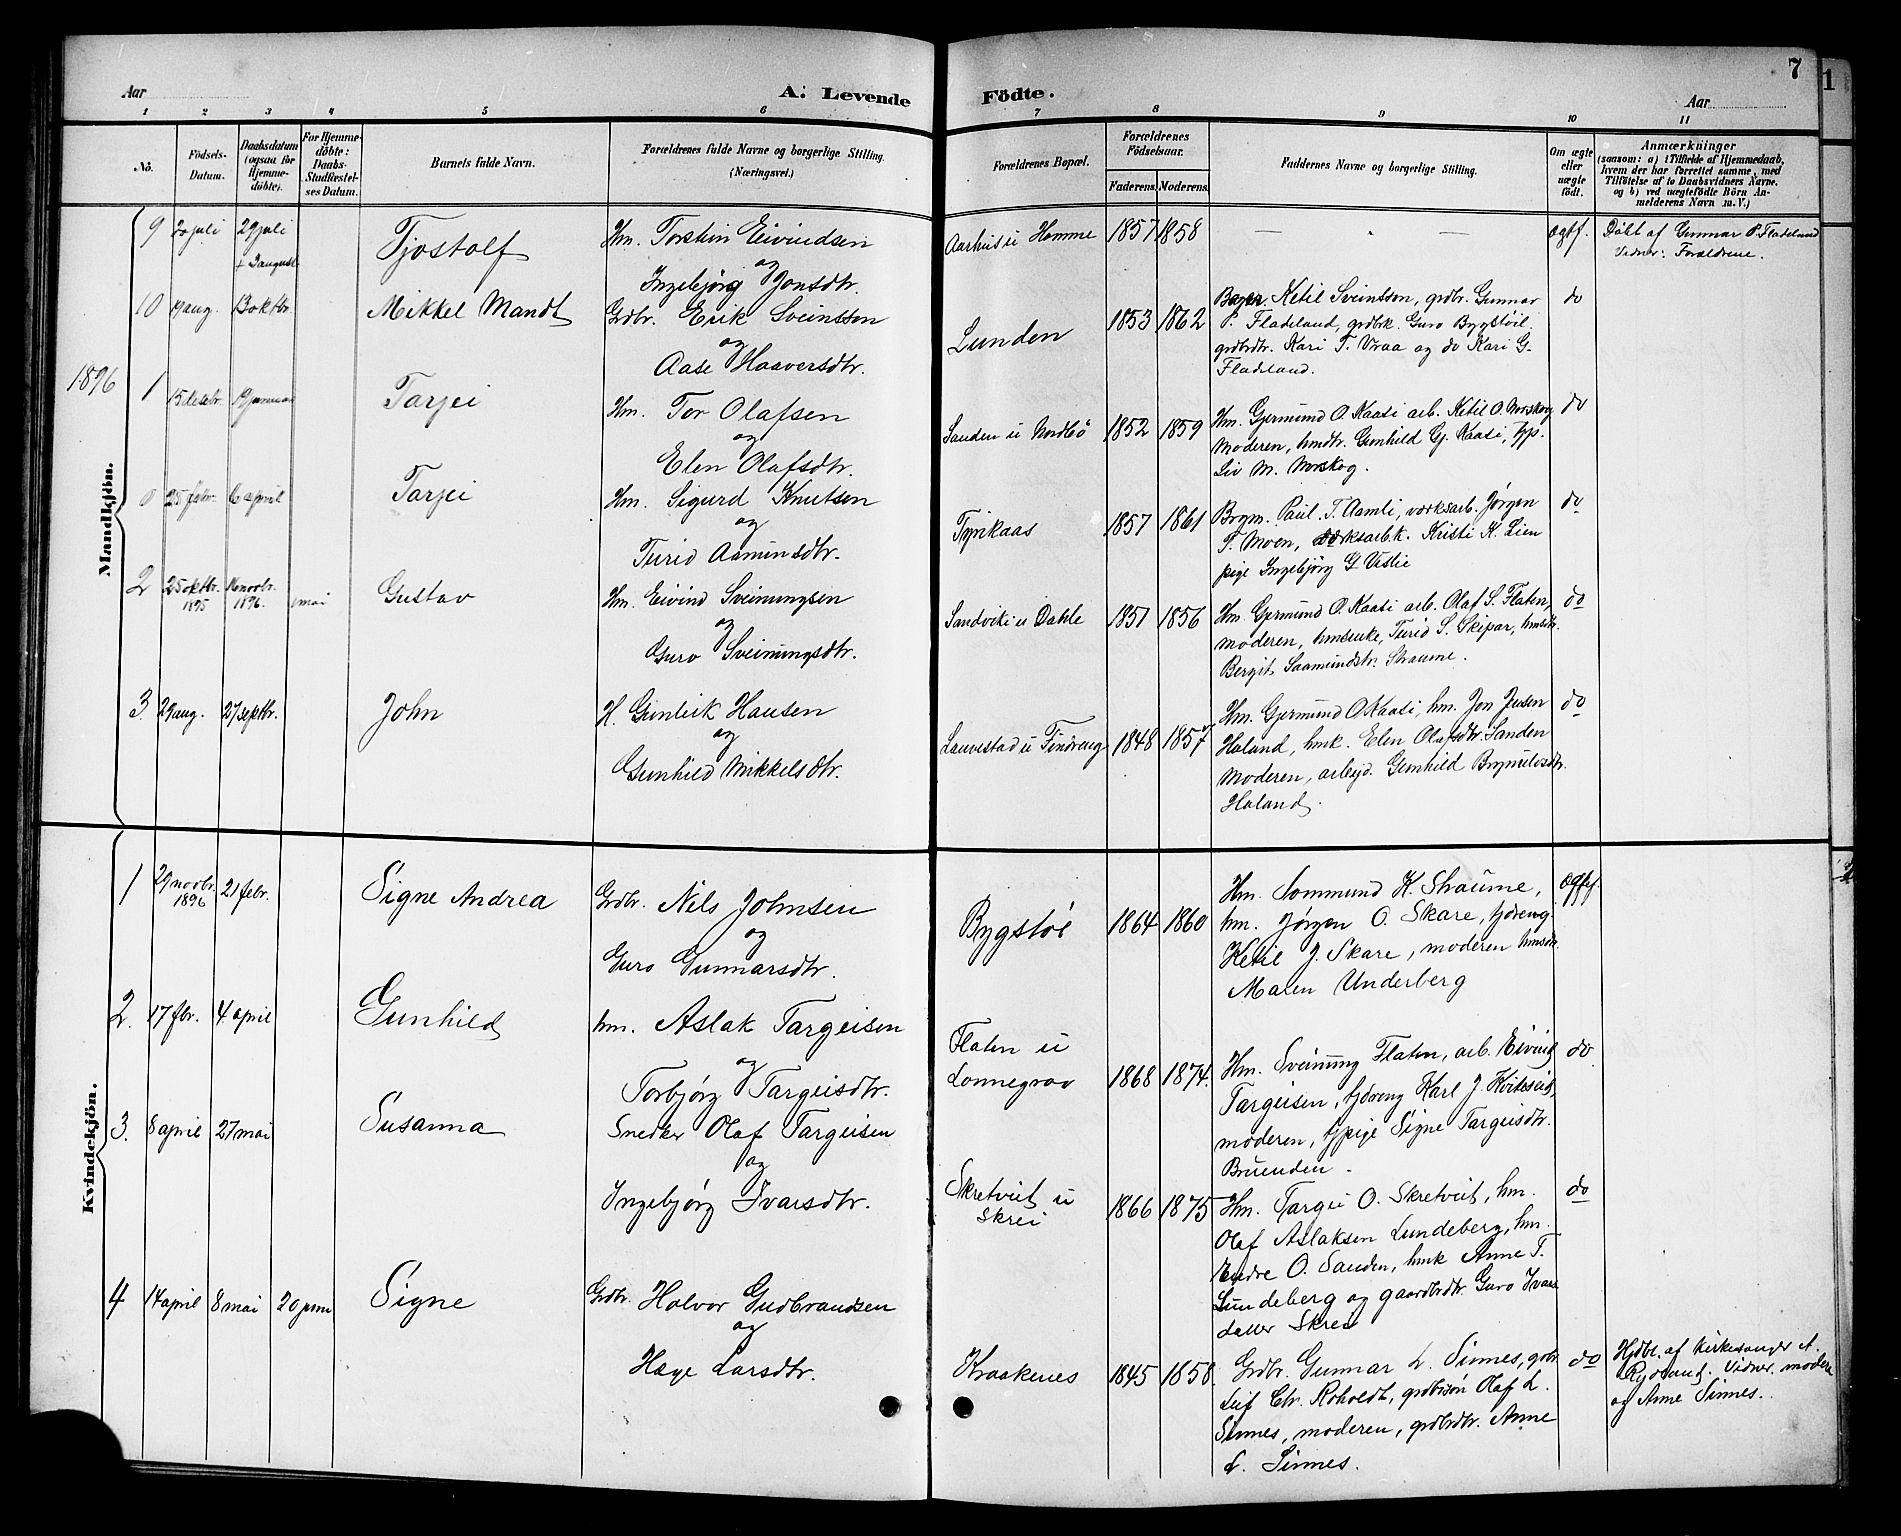 Aar
A. Levende
Födte.
Aar
7
1 2 3 4 5 6 7 8 9 10 11
No.
Födsels-Datum.
Daabsdatum (ogsaa for Hjemme-döbte).
For Hjemme-döbte: Daabs-Stadfæstel-ses Datum.
Barnets fulde Navn.
Forældrenes fulde Navne og borgerlige Stilling. (Næringsvei.)
Forældrenes Bopæl.
Forældrenes Födselsaar.
Faderens. Moderens.
Faddernes Navne og borgerlige Stilling.
Om ægte eller uægte födt.
Anmærkninger
(saasom: a) i Tilfælde af Hjemmedaab,
hvem der har forrettet samme, med
Tilföielse af to Daabsvidners Navne.
og b) ved uægtefödte Börn An-
melderens Navn m. V.)
Mandkjön.
9 20 juli 29 juli + 2 august Tjostolf
Hm. Torstein Eivindsen
og
Ingebjørg Jonsdtr.
Aarhus u Homme 1857 1858 — - — ægtf.
Döbt af Gunnar P. Fladeland
Vidner: Forældrene.
10 19 aug. 13 oktbr. Mikkel Mandt
Grdbr. Erik Sveinsson
og
Aase Haaversdtr.
Lunden 1853 1862
Ketil Sveinsson, grdbr. Gunnar
P. Fladeland, grdbrk. Guro Bygstöil,
grdbrdtr. Kari T. Vraa og do Kari G.
Fladeland.
do
1896
1 15 desebr. 19 januar Tarjei
Hm. Tor Olafsen
og
Elen Olafsdtr.
Sanden u Nordbö 1852 1859
Hm. Gjermund O. Kaasi arb. Ketil O. Norskog
Moderen, hmdtr. Gunhild Gj. Kaasi, typ.
Liv M. Norskog.
do
0 25 febr. 6 april Tarjei
Hm. Sigurd Knutsen
og
Turid Aamunsdtr.
Tyrikaas 1857 1861
Brgm. Paul T. Aamli, værksarb. Jørgen
T. Moen, værksarb.k. Kristi K. Lien
pige Ingebjørg G Vistie
do
2 25 oktbr. 1895 16 novbr. 1896. mai Gustav
Hm. Eivind Sveinungsen
og
Guro Sveinungsdtr.
Sandviki u Dahle 1851 1856
Hm. Gjermund O. Kaasi arb. Olaf S. Flaten,
moderen, hmsenke, Turid S. Skipar, hmsdtr.
Bergit Saamundstr. Straume.
do
3. 29 aug. 27 septbr. John
H. Gunleik Hansen
og
Gunhild Mikkelsdtr.
Lauvestad u Findreng 1848 1857
Hm. Gjermund O Kaasi, hm. Jon Jensen
Haland, hmk. Elen Olafsdtr. Sanden
Moderen, arbejd. Gunhild Brynulvsdtr.
Haland.
do
Kvindekjön.
1 29 novbr. 1896 21 febr. Signe Andrea
Grdbr. Nils Johnsen
og
Guro Gunnarsdtr.
Bygstöl 1864 1860
Hm. Sommund K. Straume,
hm. Jørgen O. Skare, tjdreng
Ketil J. Skare, moderen hmsdtr.
Maren Underberg
ægtf.
2. 17 fbr. 4 april Gunhild
hm. Aslak Targeisen
og
Torbjørg Targeisdtr.
Flaten u
Lonnegrav 1868 1874.
Hm. Sveinung Flaten, arb. Eivind
Targeisen, tjdreng Karl J. Kviteseid,
moderen, tjpige Signe Targeisdtr.
Bruenden.
do
3. 8 april 27 mai Susanna
Snedker Olaf Targeisen
og
Ingebjørg Ivarsdtr.
Skretveit u
Skrei 1866 1875
Hm. Targei O. Skretveit, hm.
Olaf Aslaksen Lundeberg, hm.
Endre O. Sanden, hmk Anne T.
Lundeberg og gaardbrdtr. Guro Ivars
datter Skrei
do
4 14 april 8 mai 20 juni Signe
Grdbr. Halvor Gudbrandsen
og
Hæge Larsdtr.
Kraakenes 1845 1858.
Grdbr. Gunnar L. Sinnes, grdbr.
Leif Chr. Roholdt, grdbrsön Olaf L.
Sinnes, moderen, grdbrdtr. Anne
L. Sinnes.
do
Hjdbt. af kirkesanger A.
Rydland. Vidner modern
og Anne Sinnes.